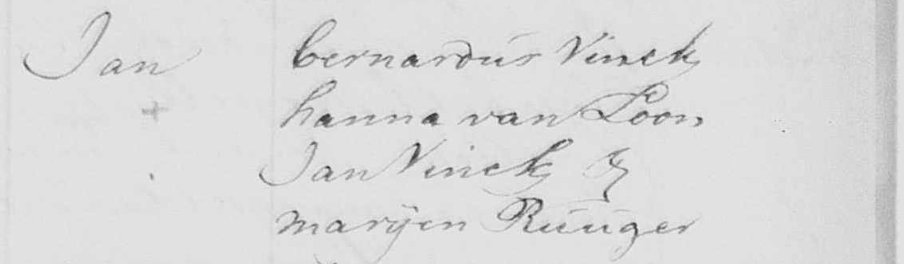 Jan bernardus Vinck
+ hanna van Loon
Jan Vinck &
marijen Ruuger